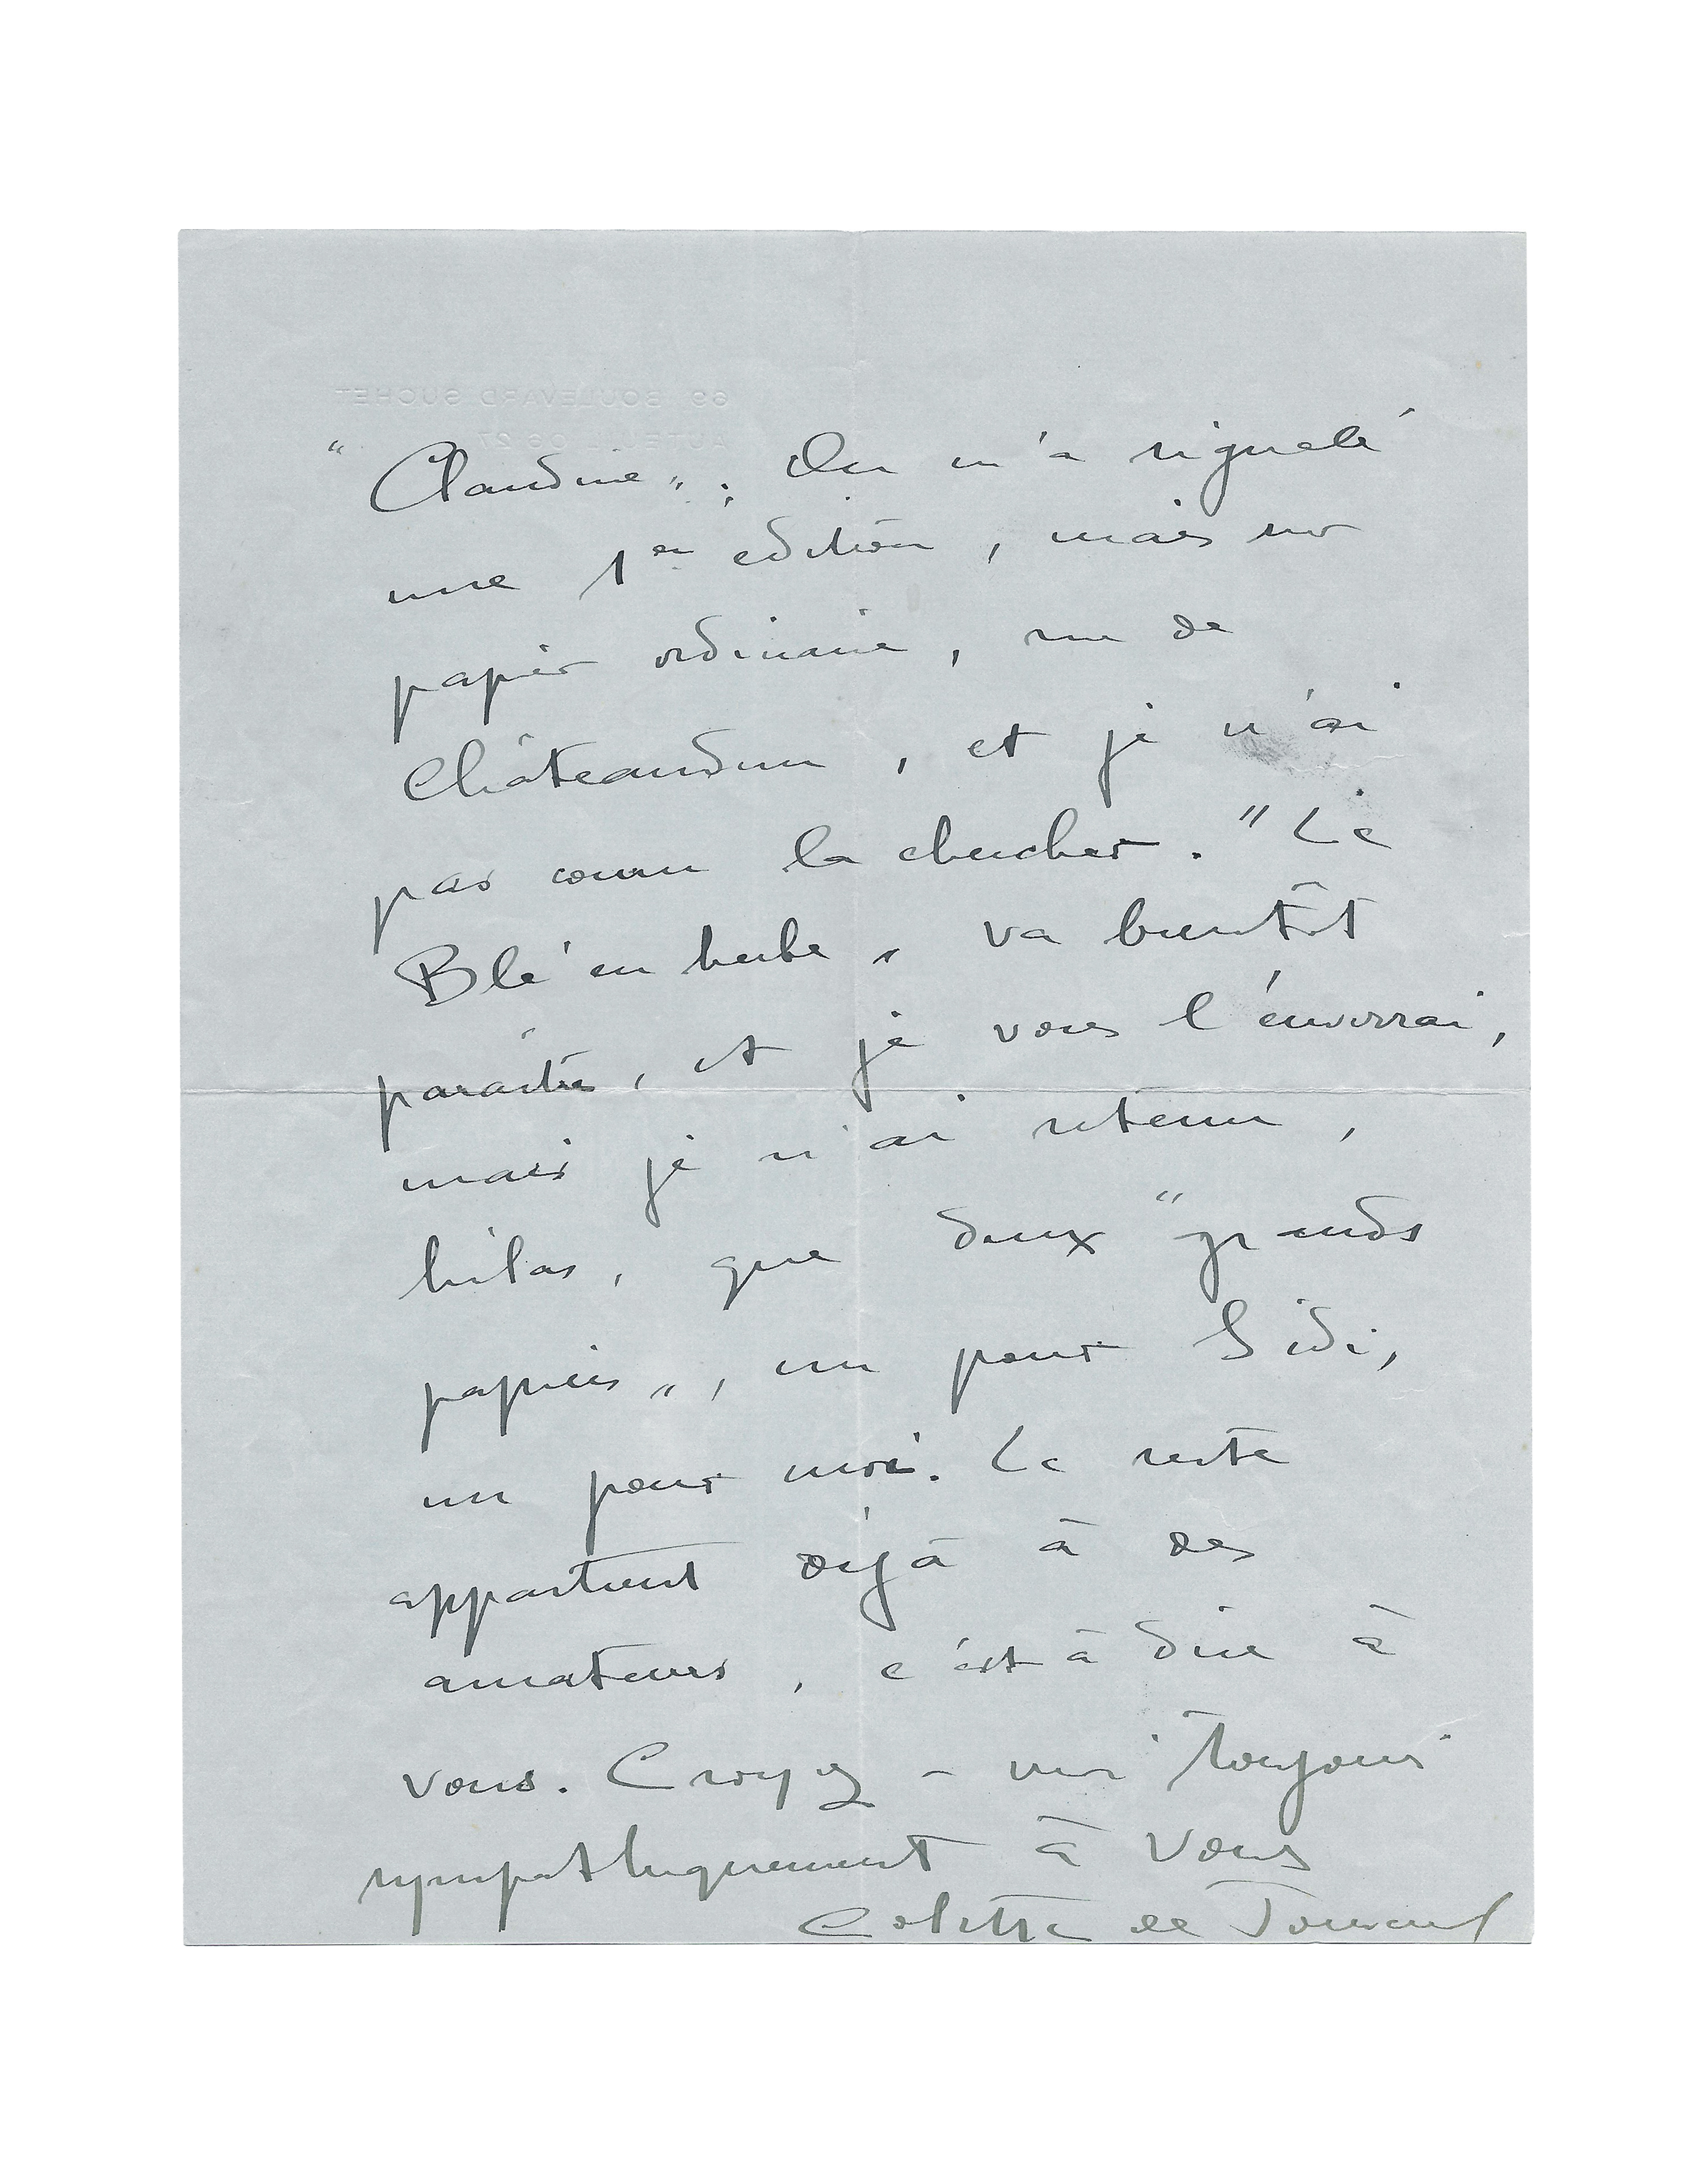 69 BOULEVARD SUCHET
AUTEUIL 06 27
" Claudine „ ; On m'a signalé
une 1ère édition, mais sur
papier ordinaire, rue de
Châteaudun, et je n'ai
pas couru la chercher. " Le
Blé en herbe „ va bientôt
paraître, et je vous l'enverrai,
mais je n'ai retenu,
hélas, que deux " grands
papiers „, un pour Sidi,
un pour moi. Le reste
appartient déjà à des
amateurs, c'est à dire à
vous. Croyez-moi toujours
sympathiquement à vous
Colette de Jouvenel